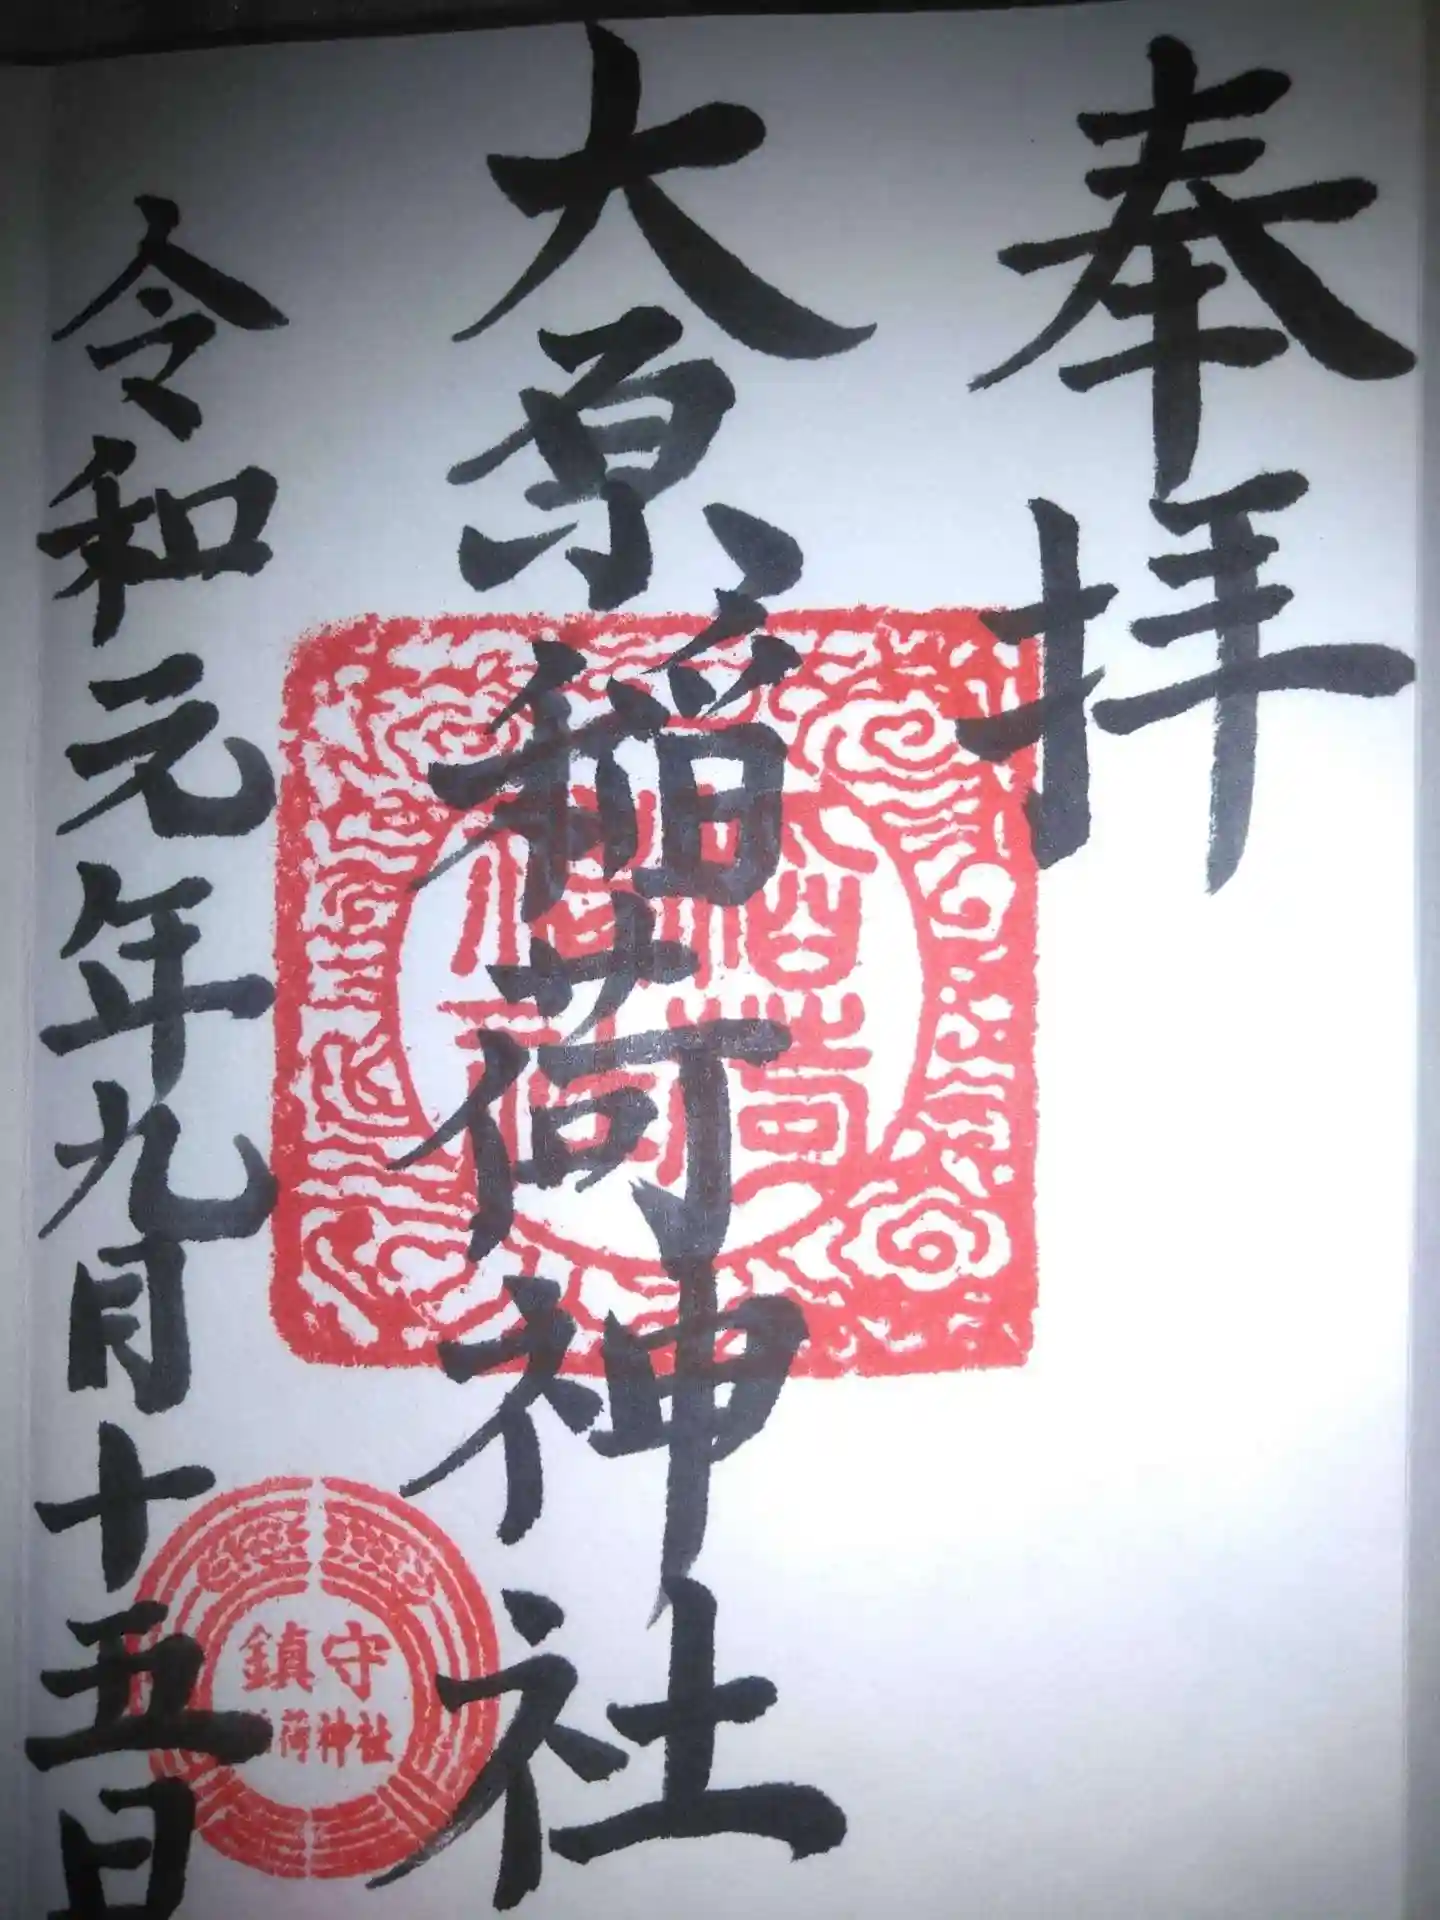 奉拝
大原稲荷神社
令和元年九月十五日
鎮守
荷神社